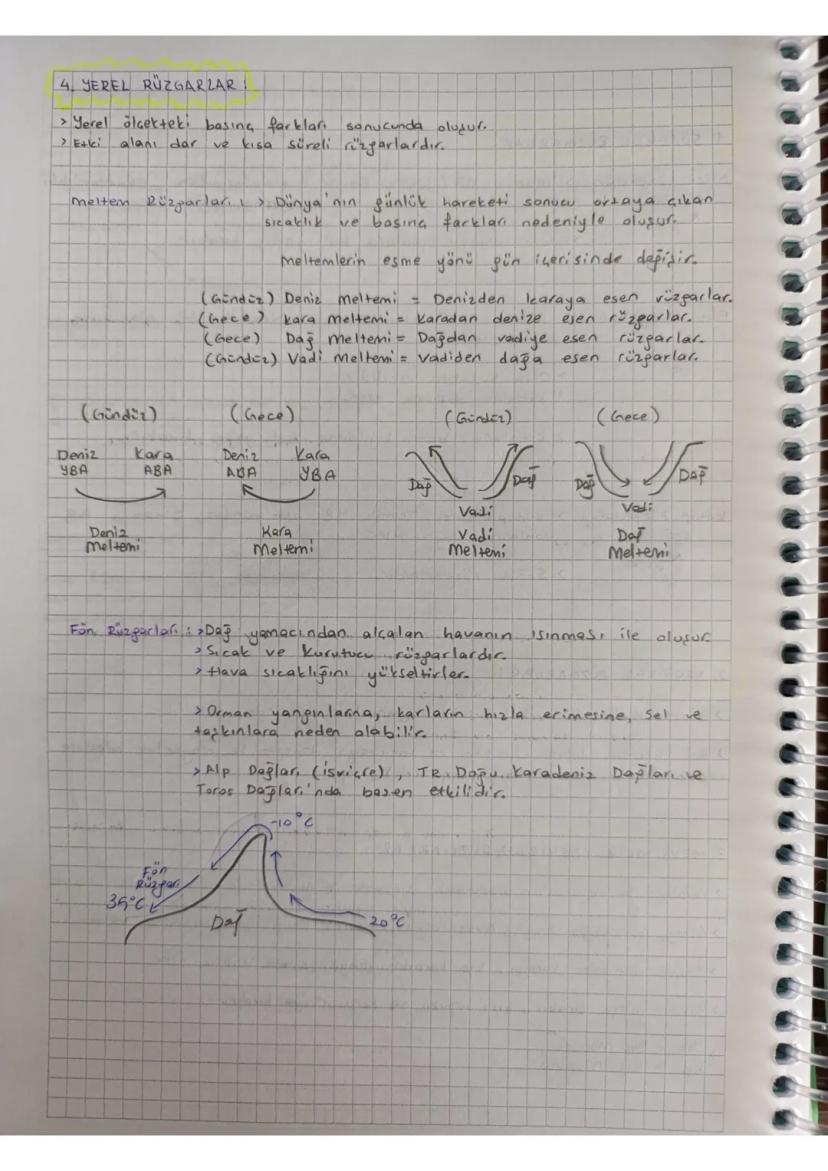 4. YEREL RÜZGARLAR :
> Yerel ölçekteki basınç farkları sonucunda oluşur.
> Etki alanı dar ve kısa süreli rüzgarlardır.
Meltem Rüzgarları : > Dünya'nın günlük hareketi sonucu ortaya çıkan
sıcaklık ve basınç farkları nedeniyle oluşur.
Meltemlerin esme yönü gün içerisinde değişir.
(Gündüz) Deniz Meltemi = Denizden karaya esen rüzgarlar.
(Gece) Kara Meltemi = Karadan denize esen rüzgarlar.
(Gece) Dağ Meltemi = Dağdan vadiye esen rüzgarlar.
(Gündüz) Vadi Meltemi = Vadiden dağa esen rüzgarlar.
(Gündüz) (Gece) (Gündüz) (Gece)
Deniz Kara Deniz Kara
YBA ABA ABA YBA
Dağ Dağ Dağ Dağ
Vadi Vadi
Deniz Meltemi
Kara Meltemi
Vadi Meltemi
Dağ Meltemi
Fön Rüzgarları : > Dağ yamacından alçalan havanın ısınması ile oluşur
> Sıcak ve kurutucu rüzgarlardır.
> Hava sıcaklığını yükseltirler.
> Orman yangınlarına, karların hızla erimesine, sel ve
taşkınlara neden olabilir.
> Alp Dağları (İsviçre), TR Doğu Karadeniz Dağları ve
Toros Dağları'nda bazen etkilidir.
-10°C
Fön
Rüzgarı
35°C
Dağ
20°C